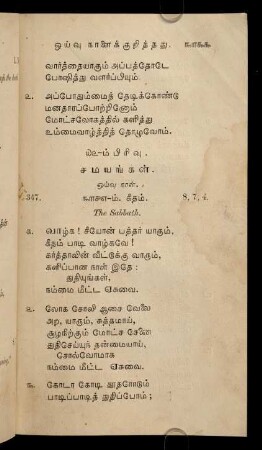 ஒய்வு நாளைக்குறித்தது.
வார்த்தையாகும் அப்பத்தோடே
போஷித்து வளர்ப்பியும்.
உ. அப்போதும்மைத் தேடிக்கொண்டு
மனதாரப்போற்றினோம்
மோட்சலோகத்தில் களித்து
உம்மைவாழ்த்தித் தொழுவோம்.
ம் பிரிவு.
சமயங்கள்.
ஒய்வு நாள்.
347. ம். கீதம். 8, 7, 4.
The Sabbath.
க. வாழ்க! சீயோன் பத்தர் யாரும்,
கீதம் பாடி வாழ்கவே!
கர்த்தாவின் வீட்டுக்கு வாரும்,
களிப்பான நாள் இதே:
துதியுங்கள்,
நம்மை மீட்ட ஏசுவை.
உ. லோக சோலி ஆசை வேலை
அற, யாரும், சுத்தமாய்,
சூழநிற்கும் மோட்ச சேனை
துதிசெய்யுந் தன்மையாய்,
சொல்வோமாக
நம்மை மீட்ட ஏசுவை.
ங. கோடா கோடி தூதரோடும்
பாடிப்பாடித் துதிப்போம்;